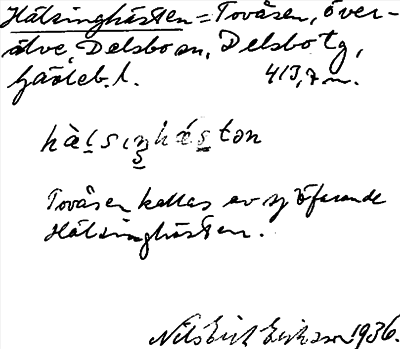 Hälsinghästen = Tovåsen, över-
älve, Delsbo sn, Delsbo tg,
Gävleb. l. 413,7 m.
hàlsiŋhástən
Tovåsen kallas av sjöfarande
Hälsinghästen.
Nils Erik Eriksson 1936.